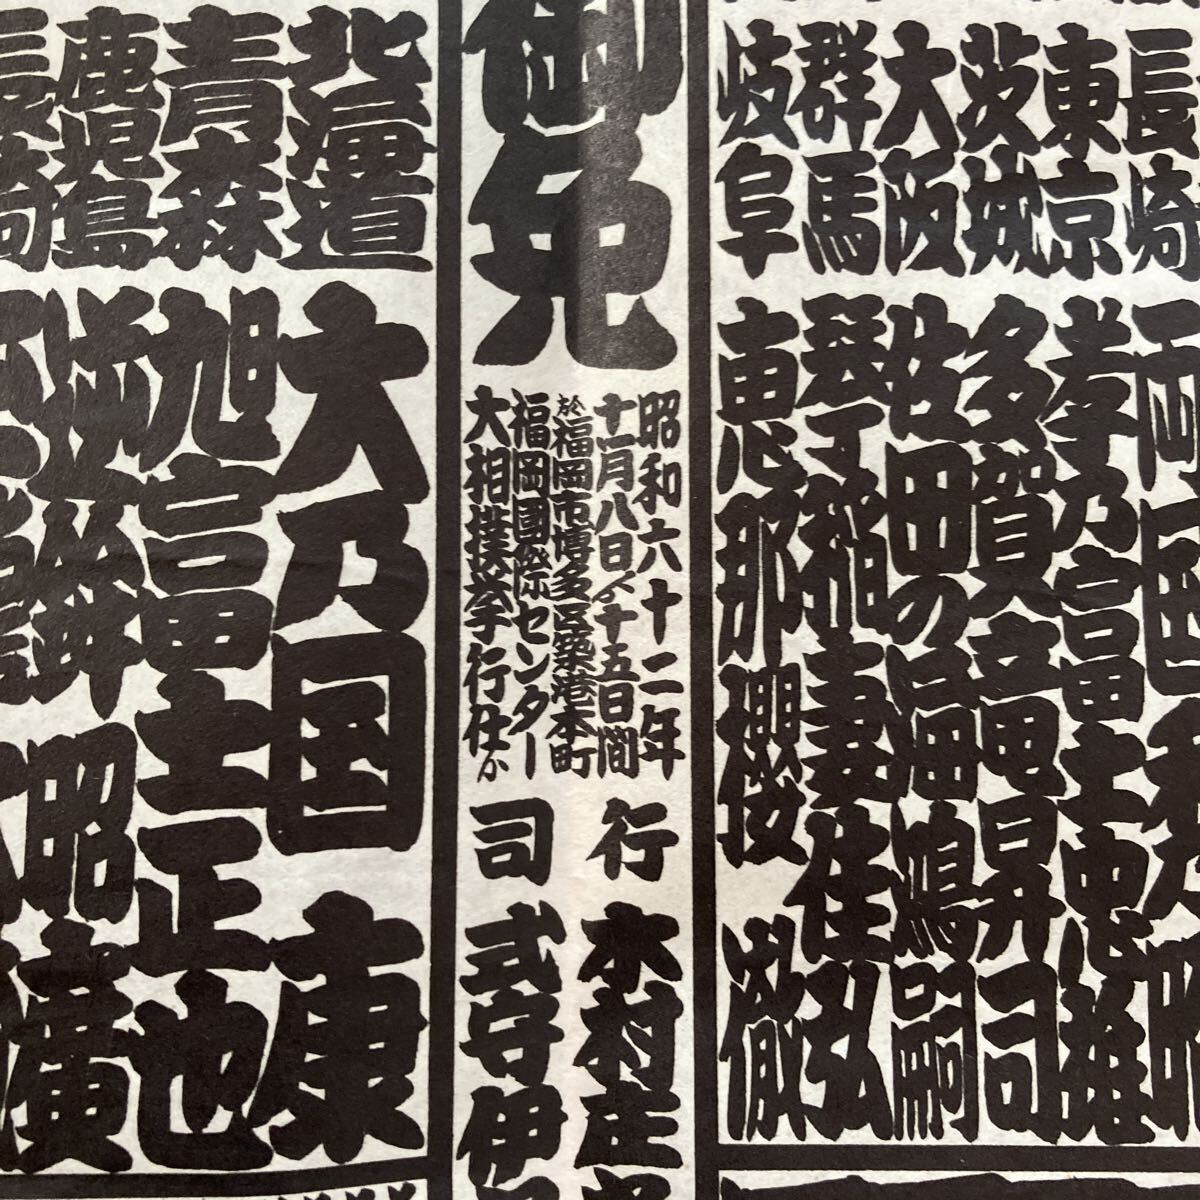 長崎 両国
東京 孝乃富士 忠雄
茨城 多賀竜 昇司
大阪 佐田の海 鴻嗣
群馬 琴稲妻 佳弘
岐阜 恵那櫻 徹
御免
昭和六十二年
十一月八日ゟ十五日間
於福岡市博多区築港本町
福岡國際センター
大相撲挙行仕候
行司
木村庄
式守伊
北海道 大乃国 康
青森 旭富士 正也
鹿児島 逆鉾 昭廣
長崎